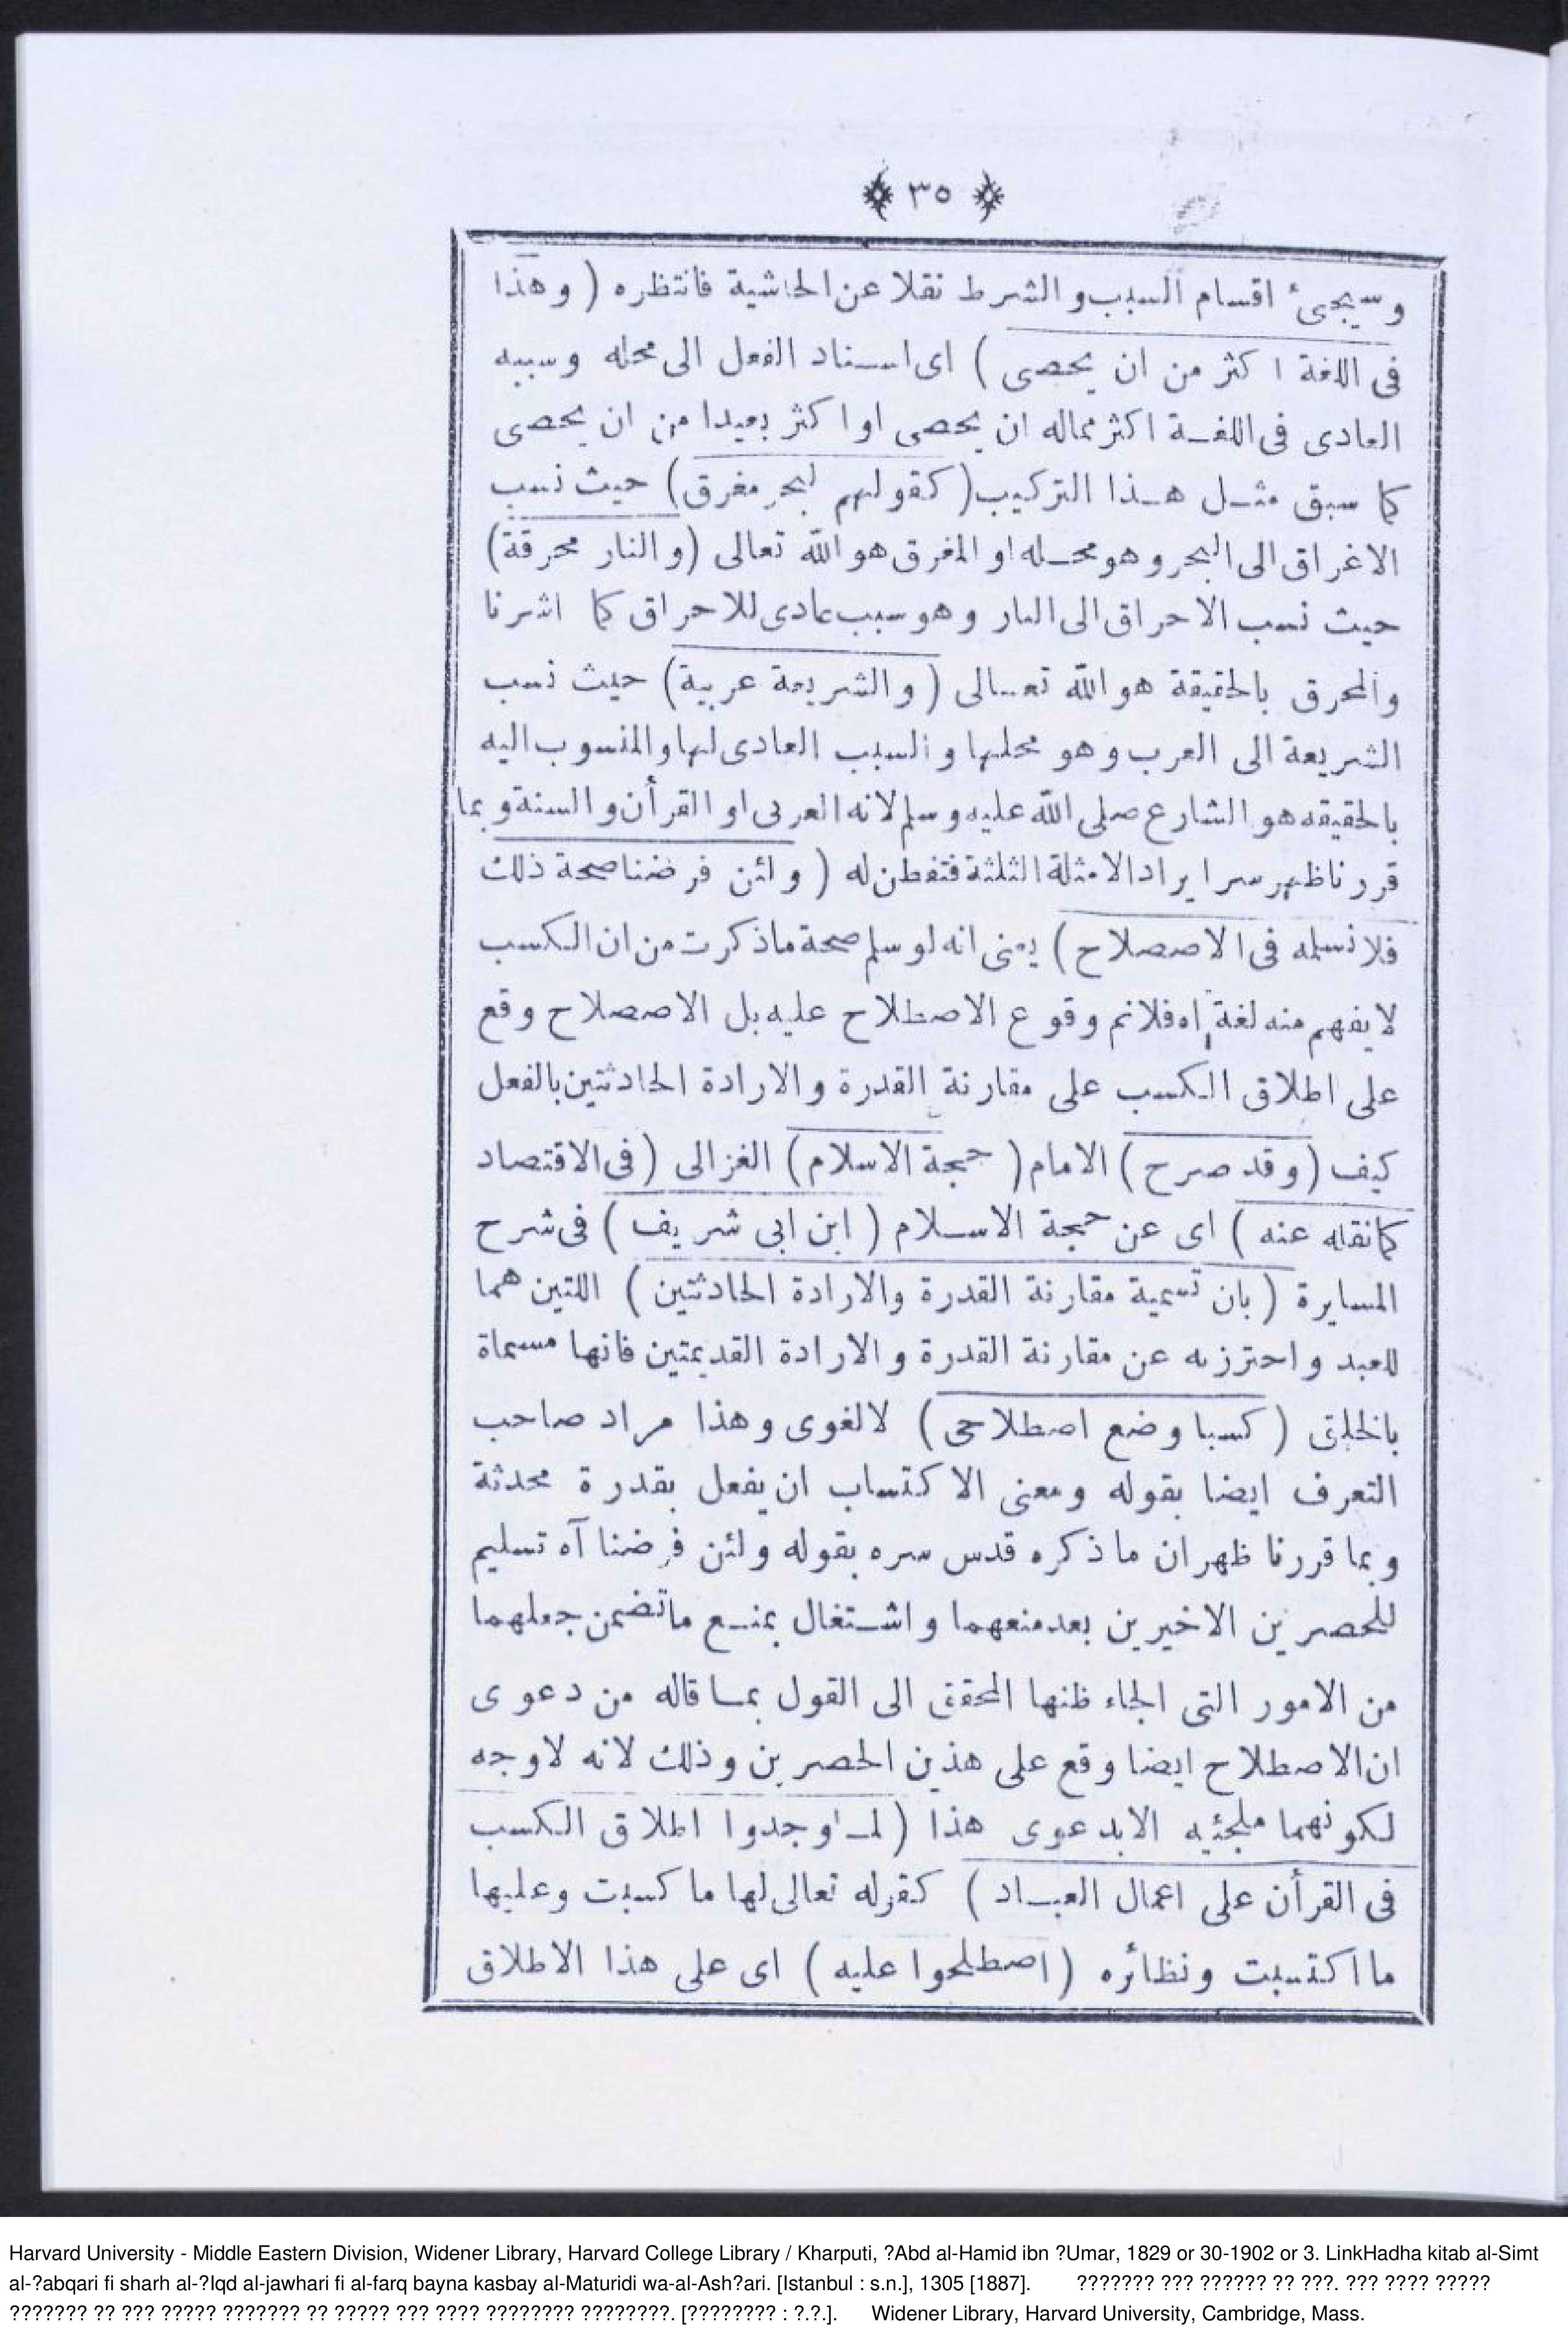 ﴿ ٣٥ ﴾
وسيجئ اقسام السبب والشرط نقلا عن الحاشية فانتظره ( وهذا
فى اللغة اكثر من ان يحصى ) اى اسناد الفعل الى محله وسببه
العادى فى اللغة اكثر مماله ان يحصى او اكثر بعيدا من ان يحصى
كما سبق مثل هذا التركيب ( كقولهم لبحر مغرق ) حيث نسب
الاغراق الى البحر وهو محله او المغرق هو الله تعالى ( والنار محرقة )
حيث نسب الاحراق الى النار وهو سبب عادى للاحراق كما اشرنا
والمحرق بالحقيقة هو الله تعالى ( والشريعة عربية ) حيث نسب
الشريعة الى العرب وهو محلها والسبب العادى لها والمنسوب اليه
بالحقيقه هو الشارع صلى الله عليه وسلم لانه العربى او القرأن والسنة وبما
قررنا ظهر سر ايراد الامثلة الثلثة فتفطن له ( ولئن فرضنا صحة ذلك
فلا نسلمه فى الاصصلاح ) يعنى انه لو سلم صحة ماذكرت من ان الكسب
لا يفهم منه لغة اه فلانم وقوع الاصطلاح عليه بل الاصصلاح وقع
على اطلاق الكسب على مقارنة القدرة والارادة الحادثتين بالفعل
كيف ( وقد صرح ) الامام ( حجة الاسلام ) الغزالى ( فى الاقتصاد
كانقله عنه ) اى عن حجة الاسلام ( ابن ابى شريف ) فى شرح
المسايرة ( بان تسمية مقارنة القدرة والارادة الحادثتين ) اللتين هما
للعبد واحترز به عن مقارنة القدرة والارادة القديمتين فانها مسماة
بالخلق ( كسبا وضع اصطلاحى ) لالغوى وهذا مراد صاحب
التعرف ايضا بقوله ومعنى الاكتساب ان يفعل بقدرة محدثة
وبما قررنا ظهر ان ما ذكره قدس سره بقوله ولئن فرضنا آه تسليم
للحصرين الاخيرين بعد منعهما واشتغال بمنع ماتضمن جعلهما
من الامور التى الجاء ظنها المحقق الى القول بما قاله من دعوى
ان الاصطلاح ايضا وقع على هذين الحصرين وذلك لانه لاوجه
لكونهما ملجئيه الابدعوى هذا ( لما وجدوا اطلاق الكسب
فى القرأن على اعمال العباد ) كقوله تعالى لها ما كسبت وعليها
ما اكتسبت ونظائره ( اصطلحوا عليه ) اى على هذا الاطلاق
Harvard University - Middle Eastern Division, Widener Library, Harvard College Library / Kharputi, ?Abd al-Hamid ibn ?Umar, 1829 or 30-1902 or 3. LinkHadha kitab al-Simt
al-?abqari fi sharh al-?Iqd al-jawhari fi al-farq bayna kasbay al-Maturidi wa-al-Ash?ari. [Istanbul : s.n.], 1305 [1887]. ??????? ??? ?????? ?? ???. ??? ???? ?????
??????? ?? ??? ????? ??????? ?? ????? ??? ???? ???????? ????????. [???????? : ?.?.]. Widener Library, Harvard University, Cambridge, Mass.